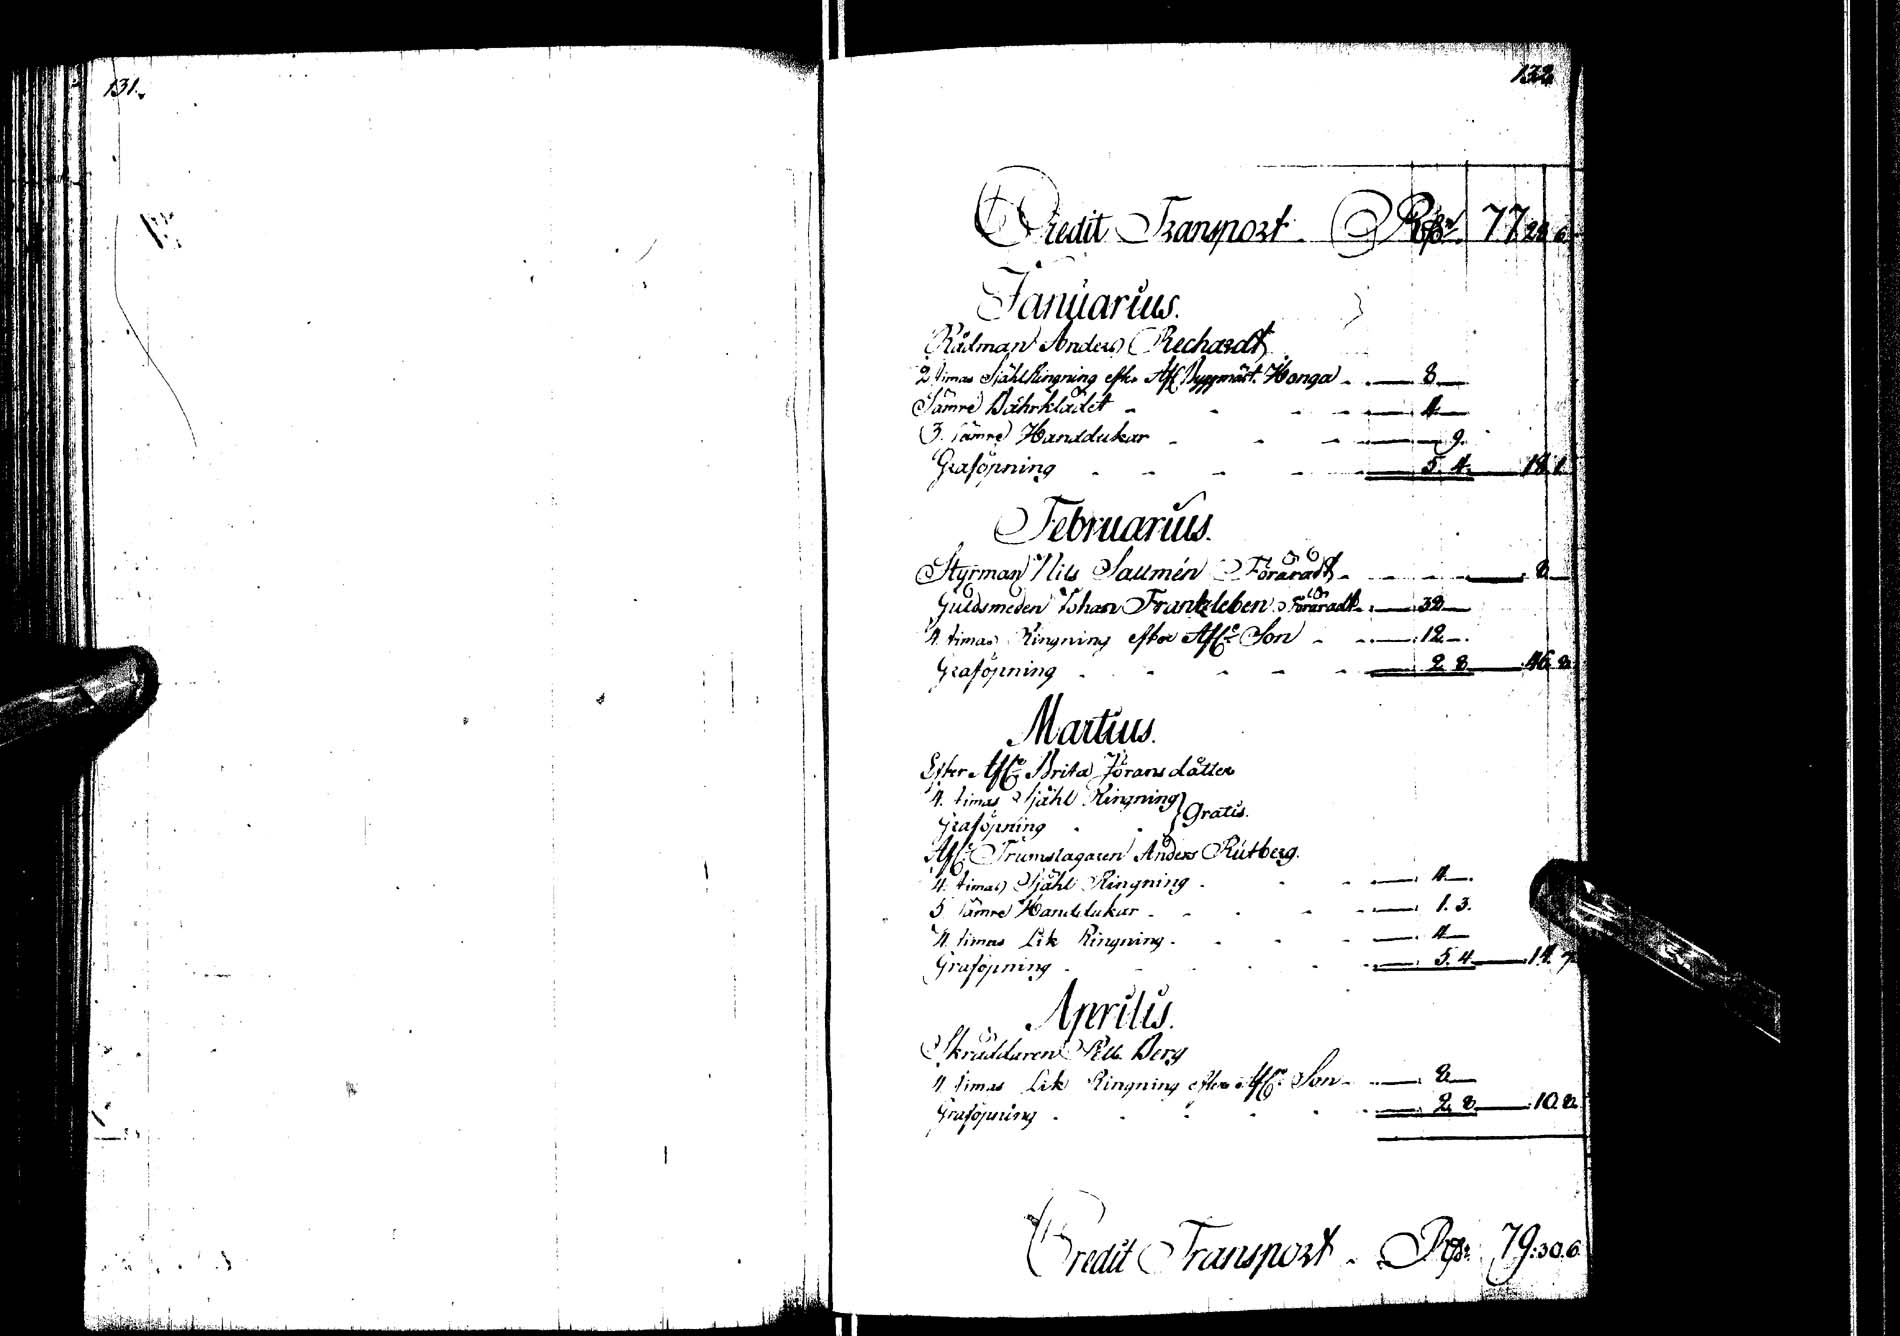 131.
132
Credit Transport. Rdr 77 28 6
Januarius.
Rådman Anders Rechardt
2 timas Siähl Ringning efter Afl. Byggmäst. Honga - 8 —
Sämre Båhrklädet - 4 —
3. sämre Handdukar - 9.
Graföpning - 5. 4. 18. 1
Februarius.
Styrman Nils Saumén Föräradt - 8 —
Guldsmeden Johan Frantzleben Föräradt - 32 —
4. timas Ringning efter Afl. Son - 12 —
Graföpning - 2 8 46. 8
Martius.
Efter Afl. Brita Jörans dåtter
4. timas Sjähl Ringning
Graföpning } Gratis.
Afl. Trumslagaren Anders Rutberg.
4. timas Sjähl Ringning - 4 —
5 sämre Handdukar - 1. 3.
4. timas Lik Ringning - 4 —
Graföpning - 5. 4 14. 7
Aprilis.
Skräddaren Berg
4 timas Lik Ringning efter Afl. Son - 8 —
Graföpning - 2 8 10. 8
Credit Transport - Rdr 79:30.6